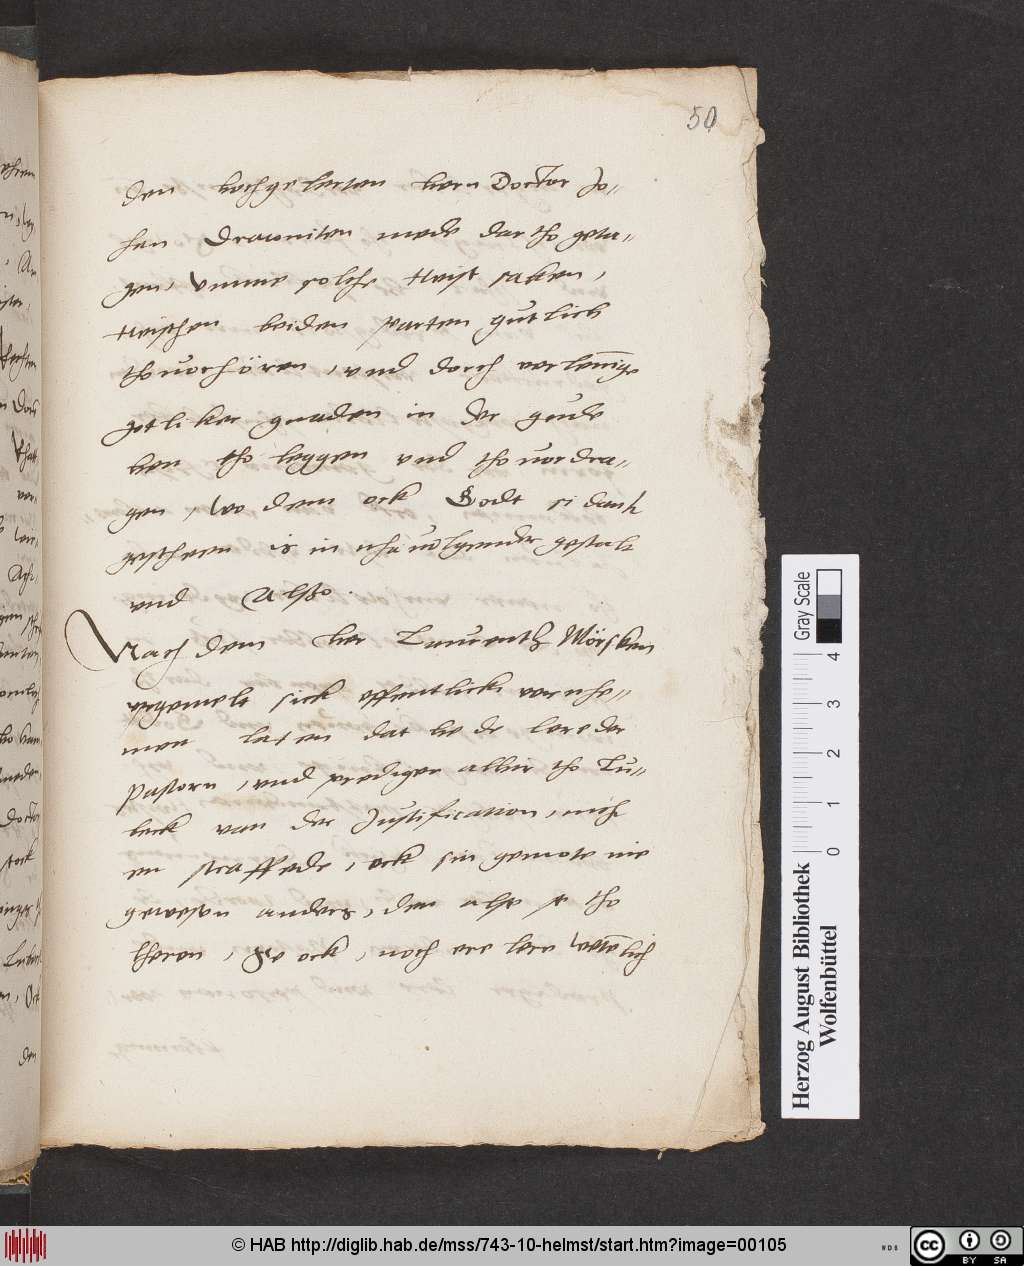 50
den hochgelerten hern Doctor Jo-
han Draconiten mede dar tho geta-
gen, vmme solche twist saken,
twischen beiden parten gutlich
tho uorhören, vnd dorch vorleninge
gotliker gnaden in der gude
hen tho leggen vnd tho uordra-
gen, wo dem ock Godt si danck
gescheen is in nhauolgender gestalt
vnd Alßo.
Nach dem her Laurentz Mörsken
vpgemelt sick offentlick vornhe-
men laten dat he de lere der
Pastorn, vnd prediger alhir tho Lu-
beck van der Justification, nich
en straffede, ock sin gemote nie
gewesen anders, den alse se tho
lheren, Se ock, noch ere lere wetelich
Herzog August Bibliothek
Wolfenbüttel
Gray Scale
0 1 2 3 4
© HAB http://diglib.hab.de/mss/743-10-helmst/start.htm?image=00105
BY SA